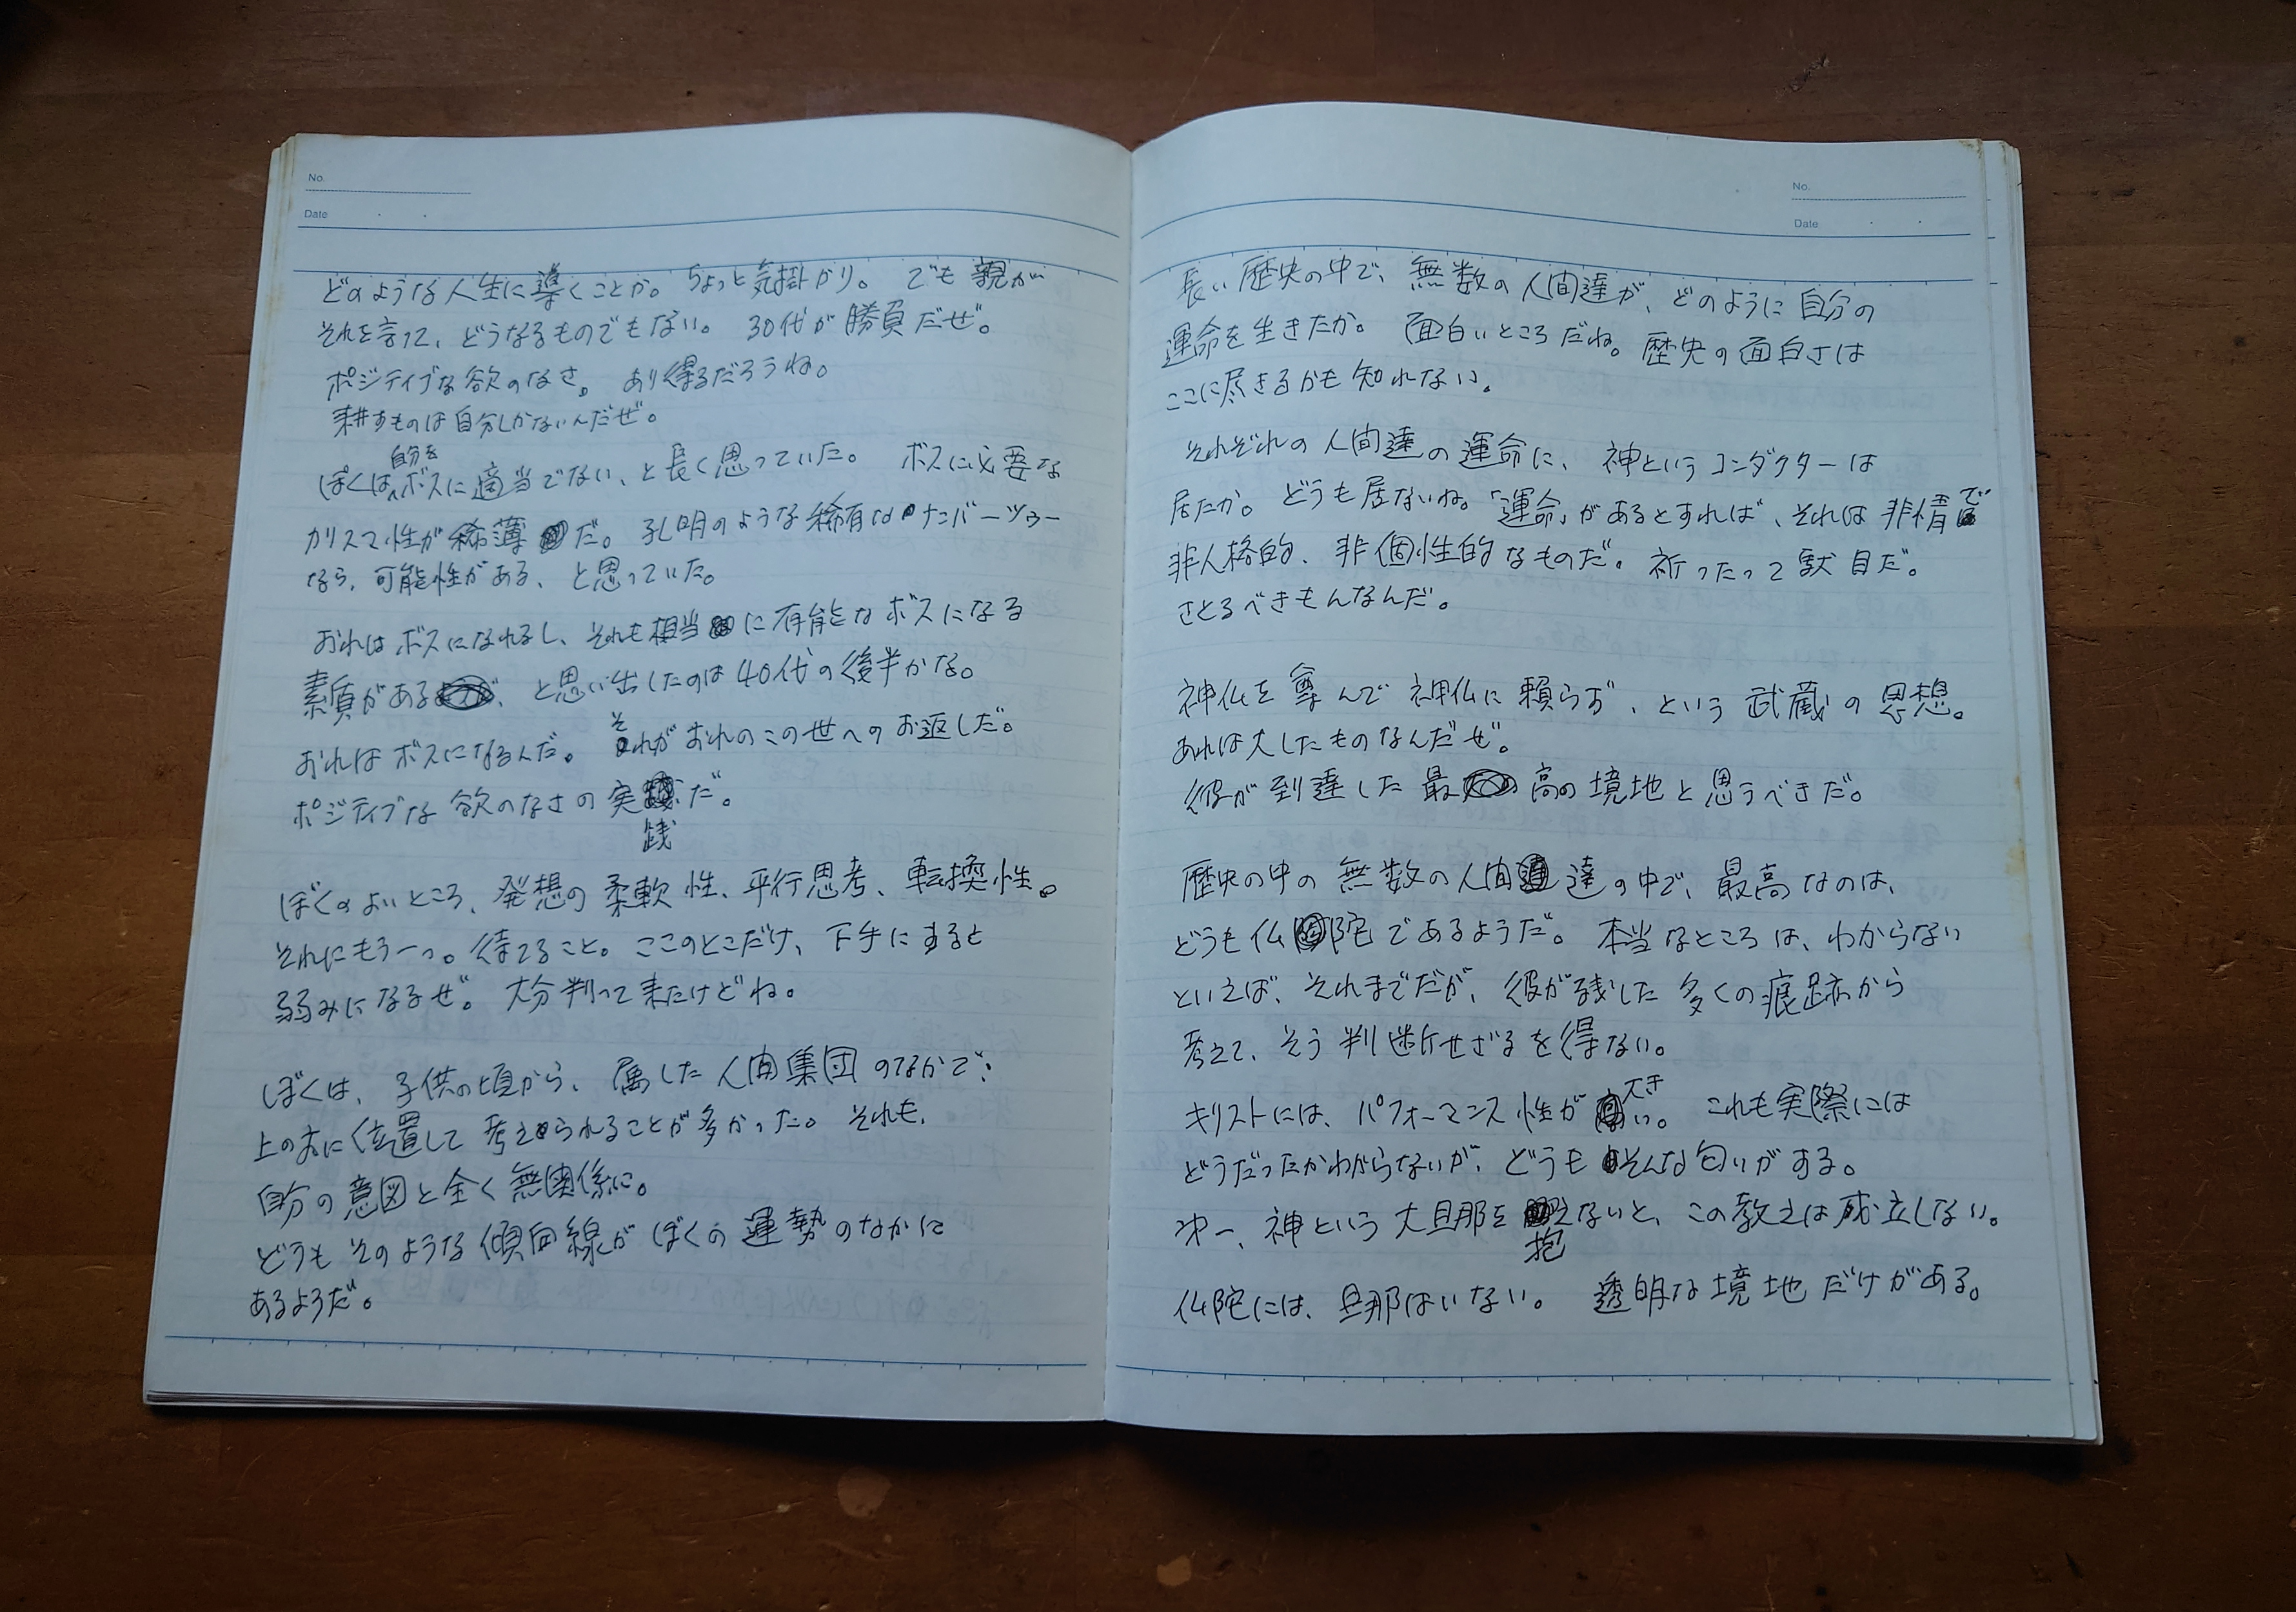 No.
Date
どのような人生に導くことか。ちょっと気掛かり。でも親が
それを言って、どうなるものでもない。30代が勝負だぜ。
ポジティブな欲のなさ。あり得るだろうね。
耕すものは自分しかないんだぜ。
ぼくは自分をボスに適当でない、と長く思っていた。ボスに必要な
カリスマ性が稀薄だ。孔明のような稀有なナンバーツゥー
なら、可能性がある、と思っていた。
おれはボスになれるし、それも相当に有能なボスになる
素質がある、と思い出したのは40代の後半かな。
おれはボスになるんだ。それがおれのこの世へのお返しだ。
ポジティブな欲のなさの実践だ。
ぼくのよいところ、発想の柔軟性、平行思考、転換性。
それにもう一つ。待てること。ここのとこだけ、下手にすると
弱みになるぜ。大分判って来たけどね。
ぼくは、子供の頃から、属した人間集団のなかで、
上の方に位置して考えられることが多かった。それも、
自分の意図と全く無関係に。
どうもそのような傾向線がぼくの運勢のなかに
あるようだ。
No.
Date
長い歴史の中で、無数の人間達が、どのように自分の
運命を生きたか。面白いところだね。歴史の面白さは
ここに尽きるかも知れない。
それぞれの人間達の運命に、神というコンダクターは
居たか。どうも居ないね。「運命」があるとすれば、それは非情で
非人格的、非個性的なものだ。祈ったって駄目だ。
さとるべきもんなんだ。
神仏を尊んで神仏に頼らず、という武蔵の思想。
あれは大したものなんだぜ。
彼が到達した最高の境地と思うべきだ。
歴史の中の無数の人間達の中で、最高なのは、
どうも仏陀であるようだ。本当なところは、わからない
といえば、それまでだが、彼が残した多くの痕跡から
考えて、そう判断せざるを得ない。
キリストには、パフォーマンス性が大きい。これも実際には
どうだったかわからないが、どうもそんな匂いがする。
才一、神という大旦那を抱えないと、この教えは成立しない。
仏陀には、旦那はいない。透明な境地だけがある。